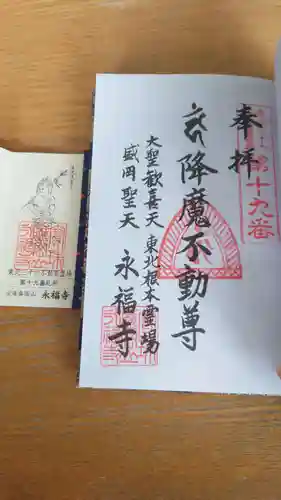 奉拝
第十九番
降魔不動尊
大聖歓喜天 東北根本霊場
盛岡聖天 永福寺
東北三十六不動尊霊場
第十九番札所
永福寺